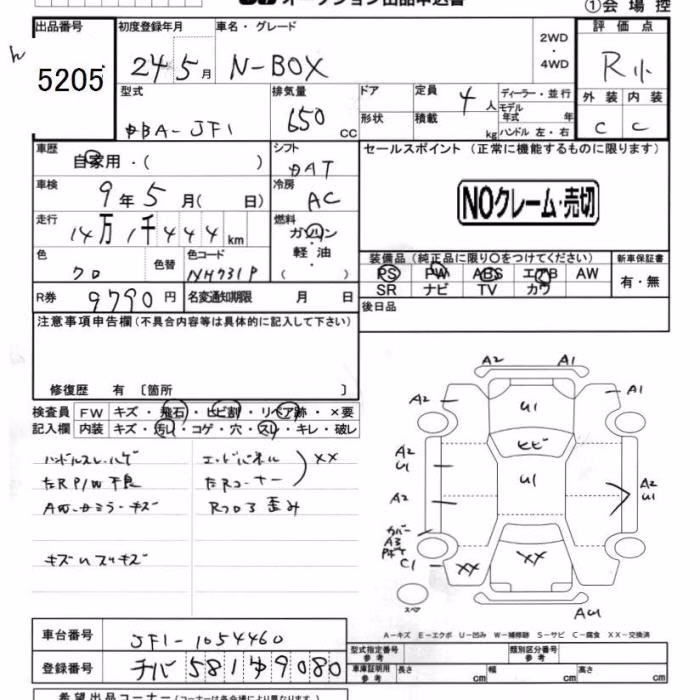 オークション出品申込書
①会場控
出品番号 5205
初度登録年月 24 5月
車名・グレード N-BOX
2WD・4WD
評価点 R小
外装 C 内装 C
型式 DBA-JF1
排気量 650 CC
ドア 形状
定員 4人
積載 kg
ディーラー・並行
モデル年式 年
ハンドル 左・右
車歴 自家用・( )
シフト DAT
セールスポイント(正常に機能するものに限ります)
NOクレーム・売切
車検 9年5月( 日)
冷房 AC
走行 14万1千444km
燃料 ガソリン・軽油・( )
色 クロ
色替
色コード NH731P
装備品(純正品に限り○をつけてください)
新車保証書 有・無
PS PW ABS エアB AW
SR ナビ TV カワ
R券 9790円
名変通知期限 月 日
後日品
注意事項申告欄(不具合内容等は具体的に記入して下さい)
修復歴 有〔箇所 〕
検査員記入欄
FW キズ・飛石・ヒビ割・リペア跡・×要
内装 キズ・汚レ・コゲ・穴・スレ・キレ・破レ
ハンドルスレ、ハゲ
エンドパネル
××
左RP/W不良
左Rコーナー
Rフロア歪み
キズ
A2 A1
A2 U1 A1
ヒビ
A2 U1
U1
A2 U1
A2
カバー
A3
C1
×× ××
スペア
A-キズ E-エクボ U-凹み W-補修跡 S-サビ C-腐食 XX-交換済
車台番号 JF1-1054460
登録番号 チバ 581ゆ9080
型式指定番号 参考
類別区分番号 参考
車庫証明用 参考 長さ cm 幅 cm 高さ cm
希望出品コーナー(コーナーは各会場により異なります。)